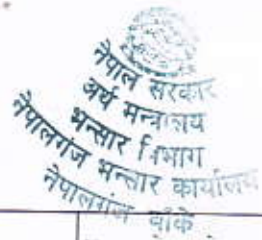 नेपाल सरकार
अर्थ मन्त्रालय
भन्सार विभाग
नेपालगंज भन्सार कार्यालय
नेपालगंज बाँके